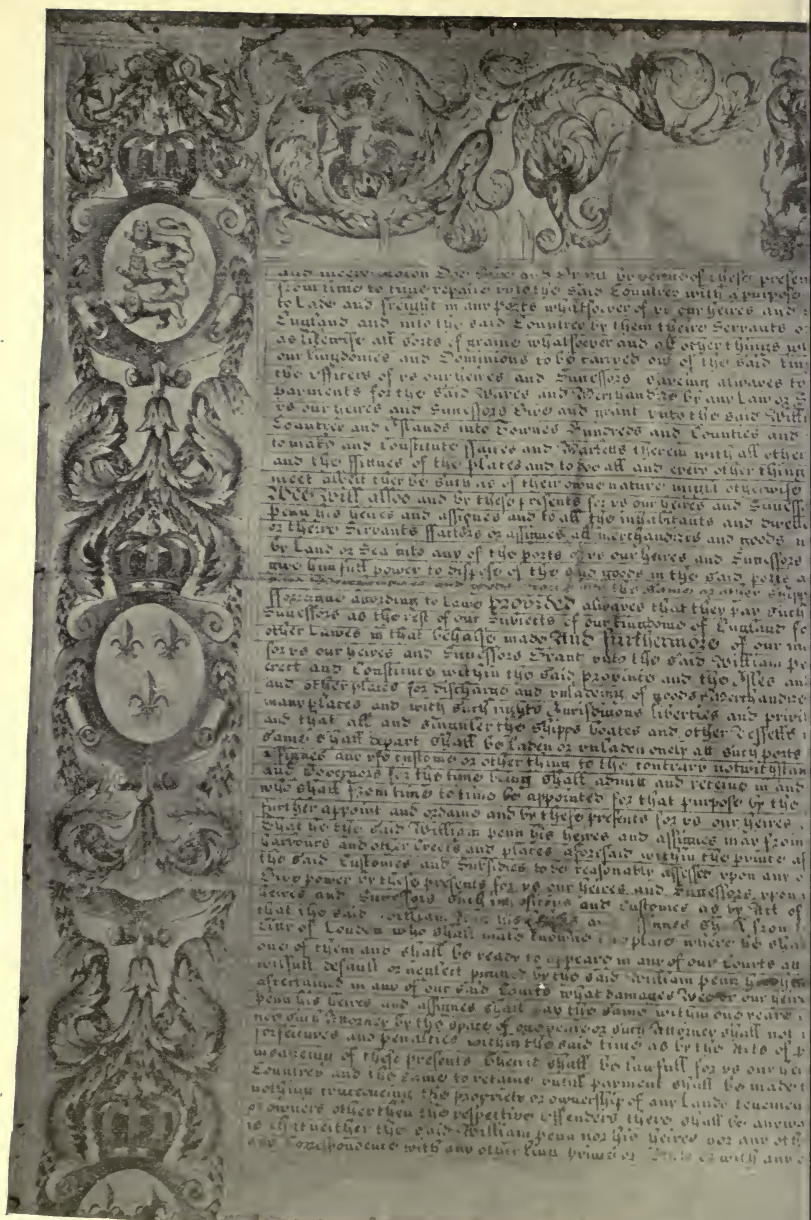 and meere motion Doe Give and Grant by vertue of these presen
from time to time repaire vnto the said Countrey with a purpose
to Lade and freight in any ports whatsoever of vs our heires and
England and into the said Countrey by them theire Servants o
as likewise all sorts of graine whatsoever and all other things w
our Kingdomes and Dominions to be carryed out of the said
the Officers of vs our heires and Successors saveing alwayes to
payments for the said Wares and Merchandizes by any Law or S
vs our heires and Successors Give and grant vnto the said Willi
Countrey and Islands into Townes Hundreds and Counties and
to make and Constitute ffaires and Martetts therein with all other
and the ffitnes of the places and to doe all and every other thing
meet albeit they be such as of their owne nature might otherwise
Wee Will alsoe and by these presents for vs our heires and Success
Penn his heires and assignes and to all the inhabitants and dwelle
or theire Servants ffactors or assignes all merchandizes and goods
by Land or Sea into any of the ports of vs our heires and Successors
give him full power to dispose of the said goods in the said ports a
and the same or other shipp
fforraigne according to Lawe Provided alwayes that they pay such
Successors as the rest of our Subiects of our Kingdome of England fo
other Lawes in that behalfe made And furthermore of our m
for vs our heires and Successors Grant vnto the said William Pe
erect and Constitute within the said province and the Isles an
and other places for discharge and vnladeing of goods & Merchandize
many places and with such rights Jurisdicons liberties and privil
and that all and singuler the Shipps boates and other Vessells
same shall depart shall be laden or vnladen onely att such ports
assignes any vse custome or other thing to the contrary notwithstan
and Governors for the time being shall admitt and receive in and
who shall from time to time be appointed for that purpose by the
further appoint and ordaine and by these presents for vs our heires
That he the said William Penn his heires and assignes may from
harbours and other Creeks and places aforesaid within the province af
the said Customes and Subsidies to be reasonably assessed vpon any
Give power by these presents for vs our heires and Successors vpon
heires and Successors Such imposicons and customes as by Act of
that the said William Penn his from
Citty of London who shall make knowne place where he shal
one of them and shall be ready to appeare in any of our Courts att
wilfull default or neglect permitted by the said William Penn
ascertained in any of our said Courts what damages Wee or our heire
Penn his heires and assignes shall pay the same within one yeare
noe such Attorney by the space of one yeare or such Attorney shall not
forfeitures and penalties within the said time as by the Acts of P
meaneing of these presents Then it shall be lawfull for vs our hei
Countrey and the same to retaine vntill payment shall be made t
nothing concerneing the propriety or ownership of any Lands tenemen
or owners other then the respective offenders there shall be anyway
is that neither the said William Penn nor his heires nor any oth
any Correspondence with any other King prince or State or with any